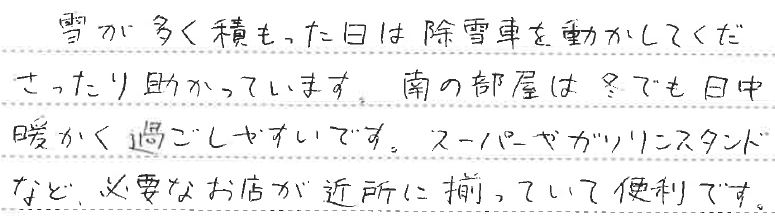 雪が多く積もった日は除雪車を動かしてくだ
さったり助かっています。南の部屋は冬でも日中
暖かく過ごしやすいです。スーパーやガソリンスタンド
など、必要なお店が近所に揃っていて便利です。